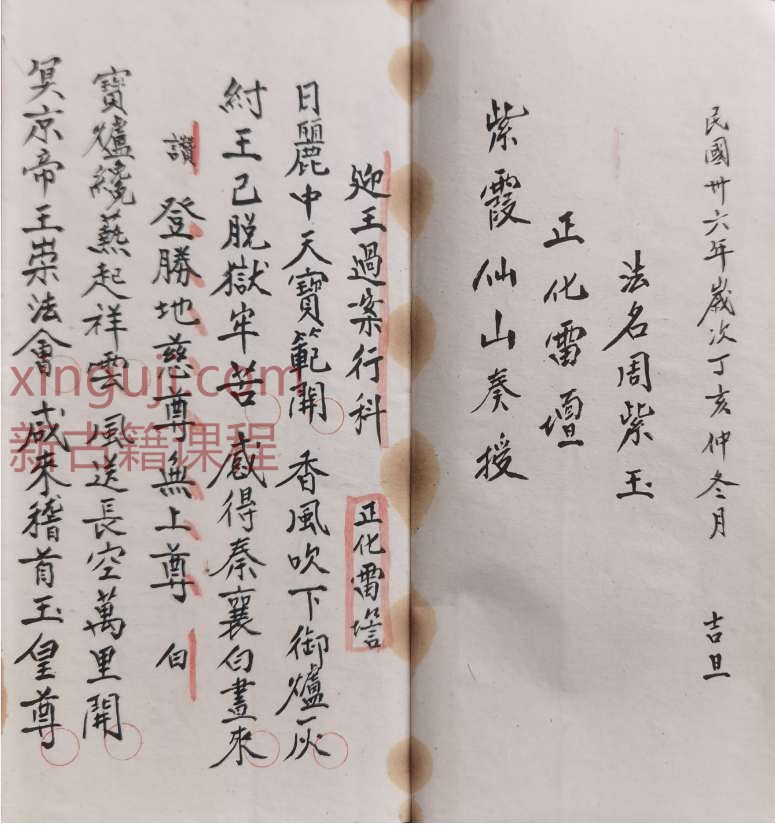 民國卅六年歲次丁亥仲冬月 吉旦
法名周紫玉
正化雷壇
紫霞仙山奏授
迎王過案行科 正化雷壇
日麗中天寶範開 香風吹下御爐灰
紂王已脫獄牢苦 感得秦襄白晝來
讚 登勝地慈尊無上尊 白
寶爐纔爇起祥雲 風送長空萬里開
冥京帝王崇法會 咸來稽首玉皇尊
xinguji.com
新古籍课程